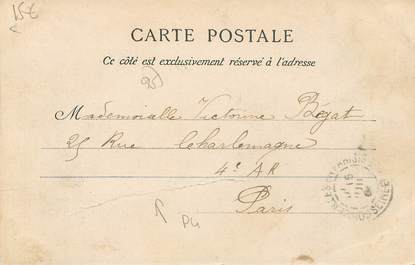 15€
CARTE POSTALE
Ce côté est exclusivement réservé à l'adresse
95)
Mademoiselle Victorine Bégat
25 Rue Charlemagne
4e AR
Paris
P4